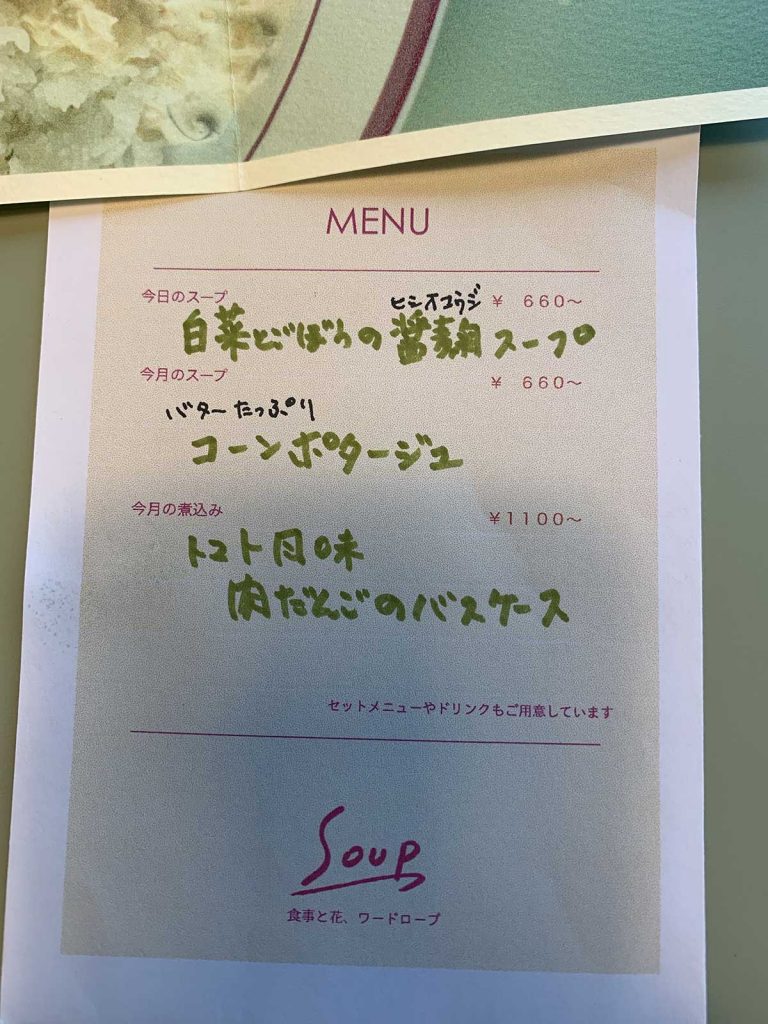 MENU
今日のスープ ヒシオコウジ ¥ 660～
白菜とごぼうの醤麹スープ
今月のスープ ¥ 660～
バターたっぷり
コーンポタージュ
今月の煮込み ¥1100～
トマト風味
肉だんごのバスケース
セットメニューやドリンクもご用意しています
Soup
食事と花、ワードローブ